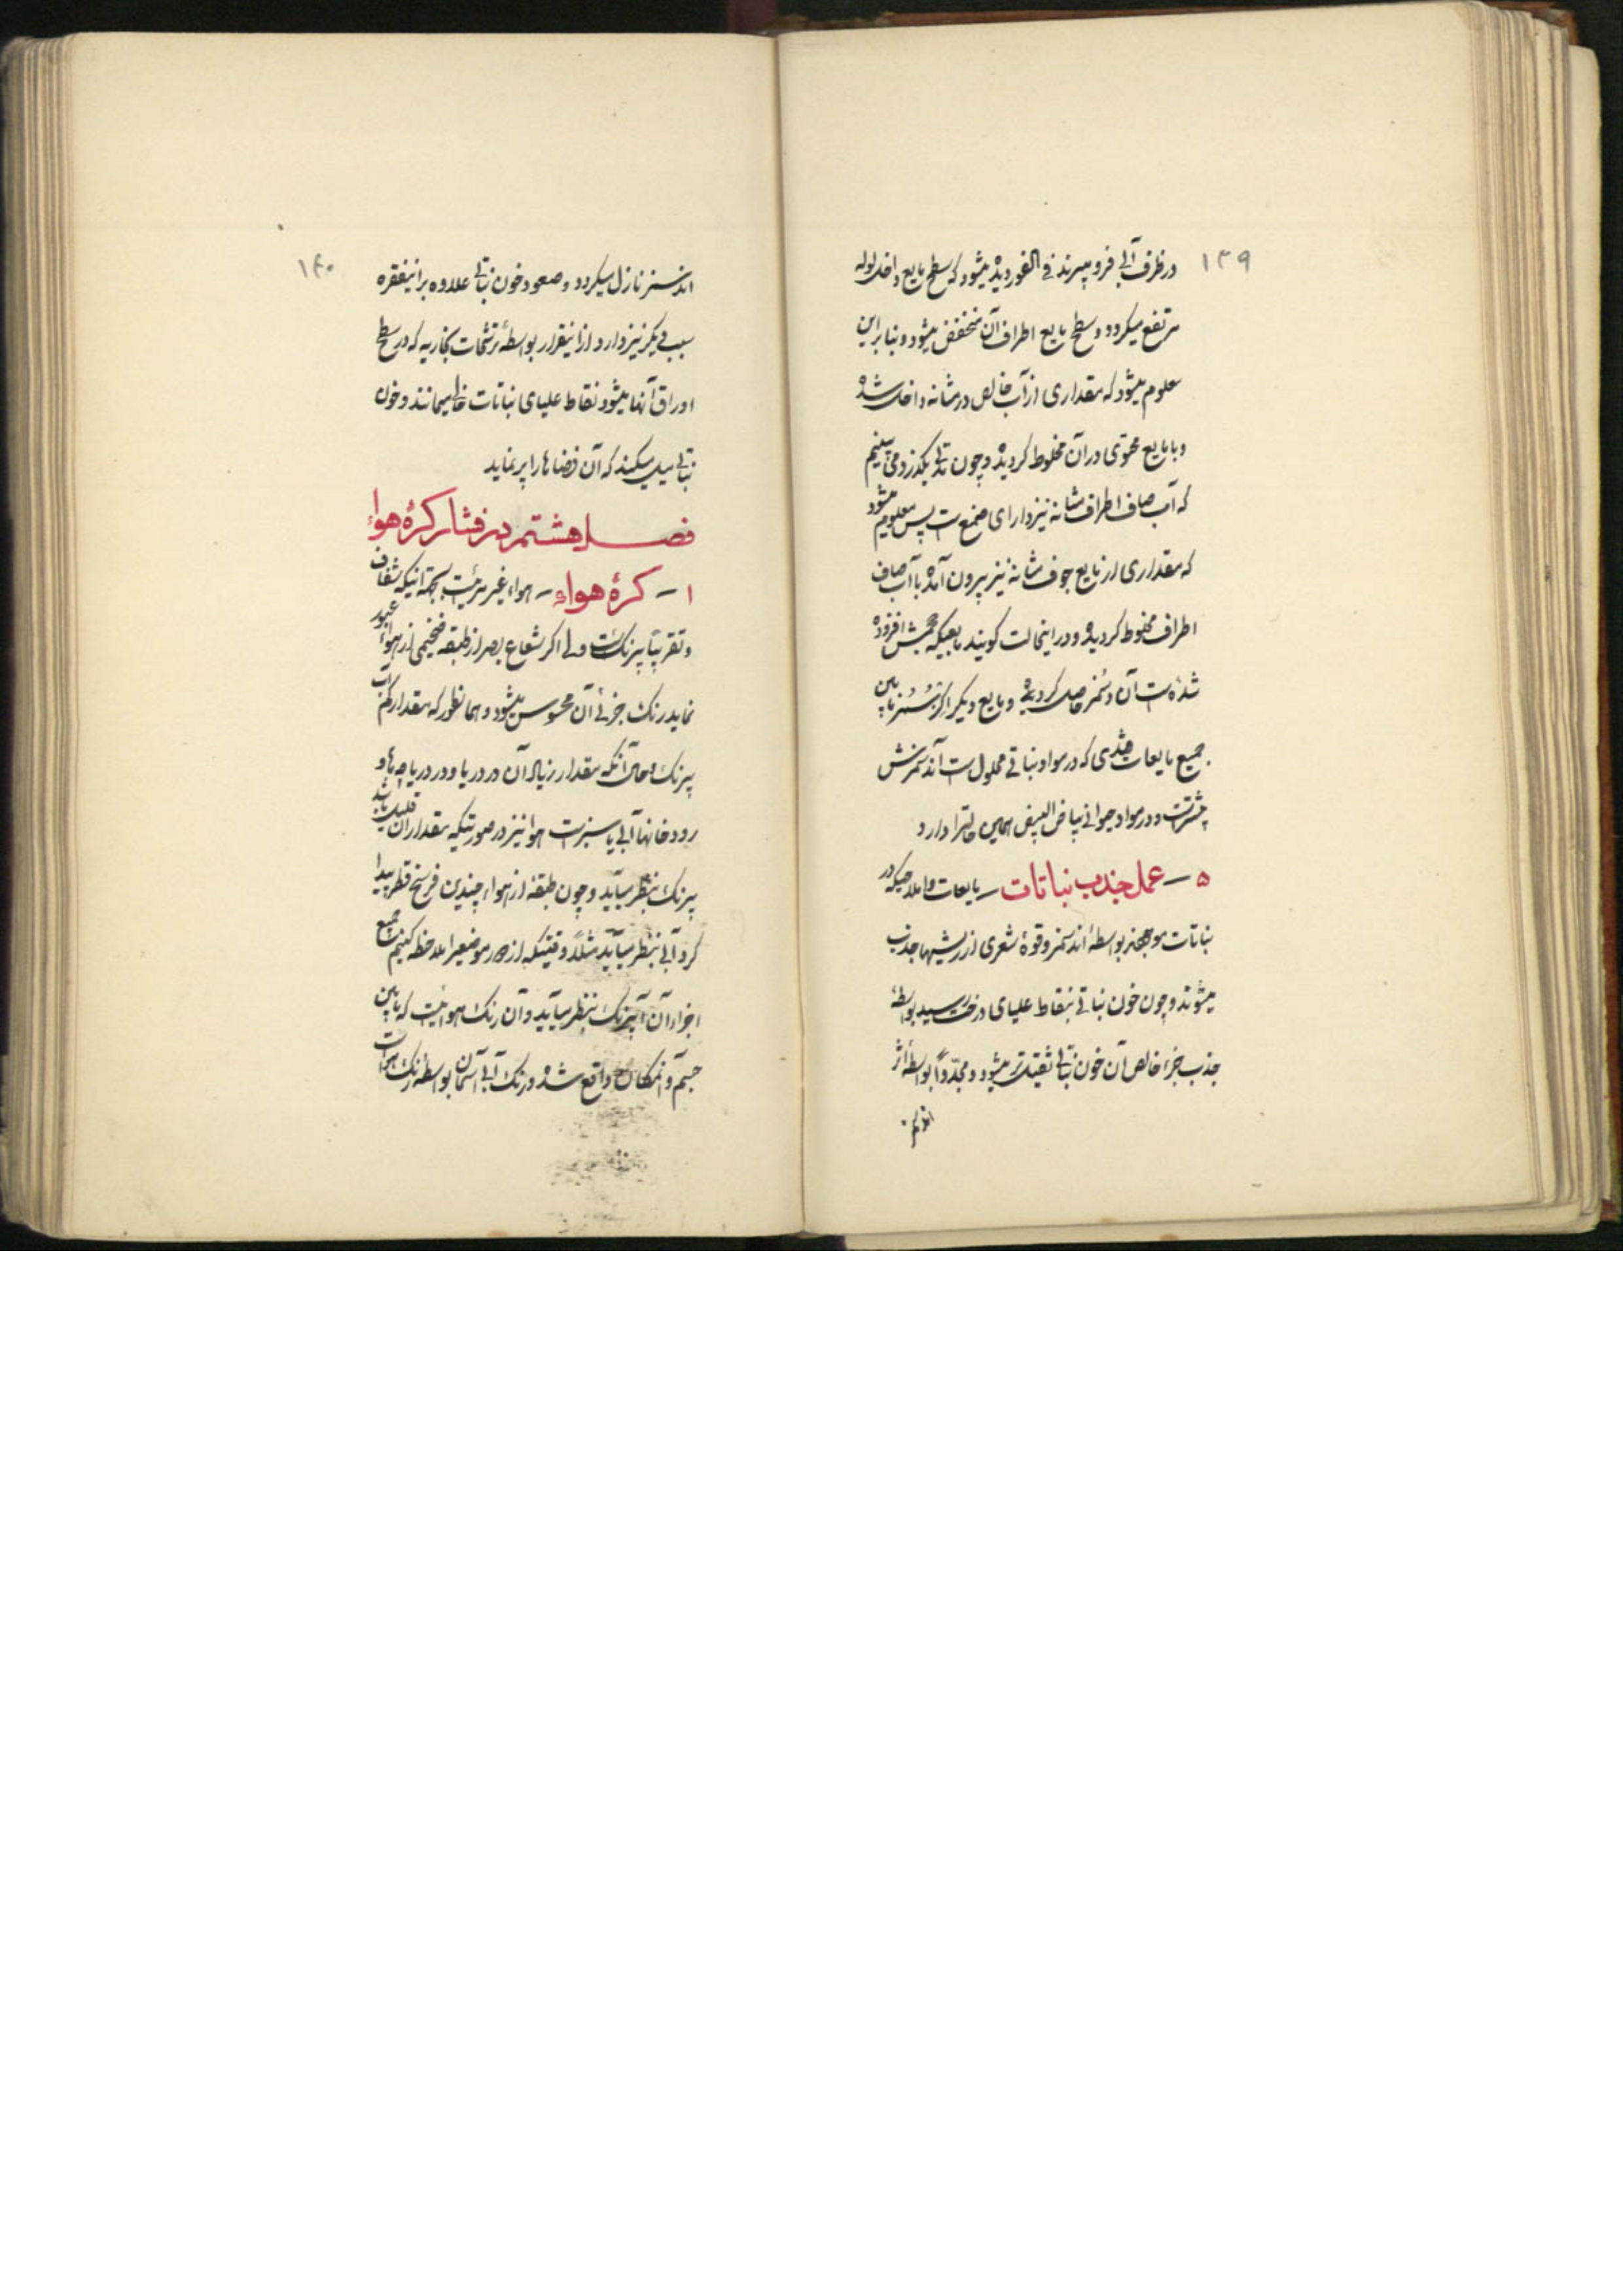 ۱۳۹
در ظرف آبی فرو میبرند فی الفور دیده میشود که سطح مایع داخل لوله
مرتفع میکردد و سطح مایع اطراف آن منخفض میشود و بنا براین
معلوم میشود که مقداری از آب خالص در مثانه داخل شده
و با مایع محتوی در آن مخلوط کردیده و چون مدتی بکذرد می بینیم
که آب صاف اطراف مثانه نیز دارای صمغ است پس معلوم میشود
که مقداری از مایع جوف مثانه نیز بیرون آمده با آب صاف
اطراف مخلوط کردیده و در اینحالت کویند مایعیکه حجمش افزوده
شده است آن دسمز حاصل کردیده و مایع دیکر اکزسمز
جمیع مایعات قندی که در مواد نباتی محلول است آندسمزش
بیشتر است و در مواد حیوانی بیاض البیض همین حالترا دارد
۵ – عمل جذب نباتات – مایعات و املاحیکه در
نباتات موجودند بواسطهٔ اندسمز و قوهٔ شعری از ریشه‌ها جذب
میشوند و چون خون نباتی بنقاط علیای درخت رسید بواسطه
جذب جزء خالص آن خون نباتی ثقیلتر میشود و مجدّداً بواسطهٔ اثر
اندسمز
۱۴۰
اندسمز نازل میکردد و صعود خون نباتی علاوه بر اینفقره
سبب دیکر نیز دارد از اینقرار بواسطهٔ ترشحات بخاریه که در سطح
اوراق آنها میشود نقاط علیای نباتات خالی میمانند و خون
نباتی میل میکند که آن فضاها را پر نماید
فصل هشتم در فشار کرهٔ هواء
۱ – کرهٔ هواء – هواء غیر مرئیست بجهة آنیکه شفاف
و تقریباً بیرنک است ولی اکر شعاع بصر از طبقه ضخیمی از هواء عبور
نماید رنک جزئی آن محسوس میشود و همانطور که مقدار کم آب
بیرنک و حال آنکه مقدار زیاد آن در دریا و در دریاچه ها و
رودخانها آبی یا سبز است هوا نیز در صورتیکه مقدار آن قلیل باشد
بیرنک بنظر میآید و چون طبقهٔ از هواء چندین فرسخ قطر پیدا
کرد آبی بنظر میآید مثلاً وقتیکه از دور موضعیرا ملاحظه کنیم جمیع
اجزاء آن آبیرنک بنظر میآید و آن رنک هوائیست که مابین
چشم و آنمکان واقع شده و رنک آبی آسمان بواسطهٔ رنک هواست